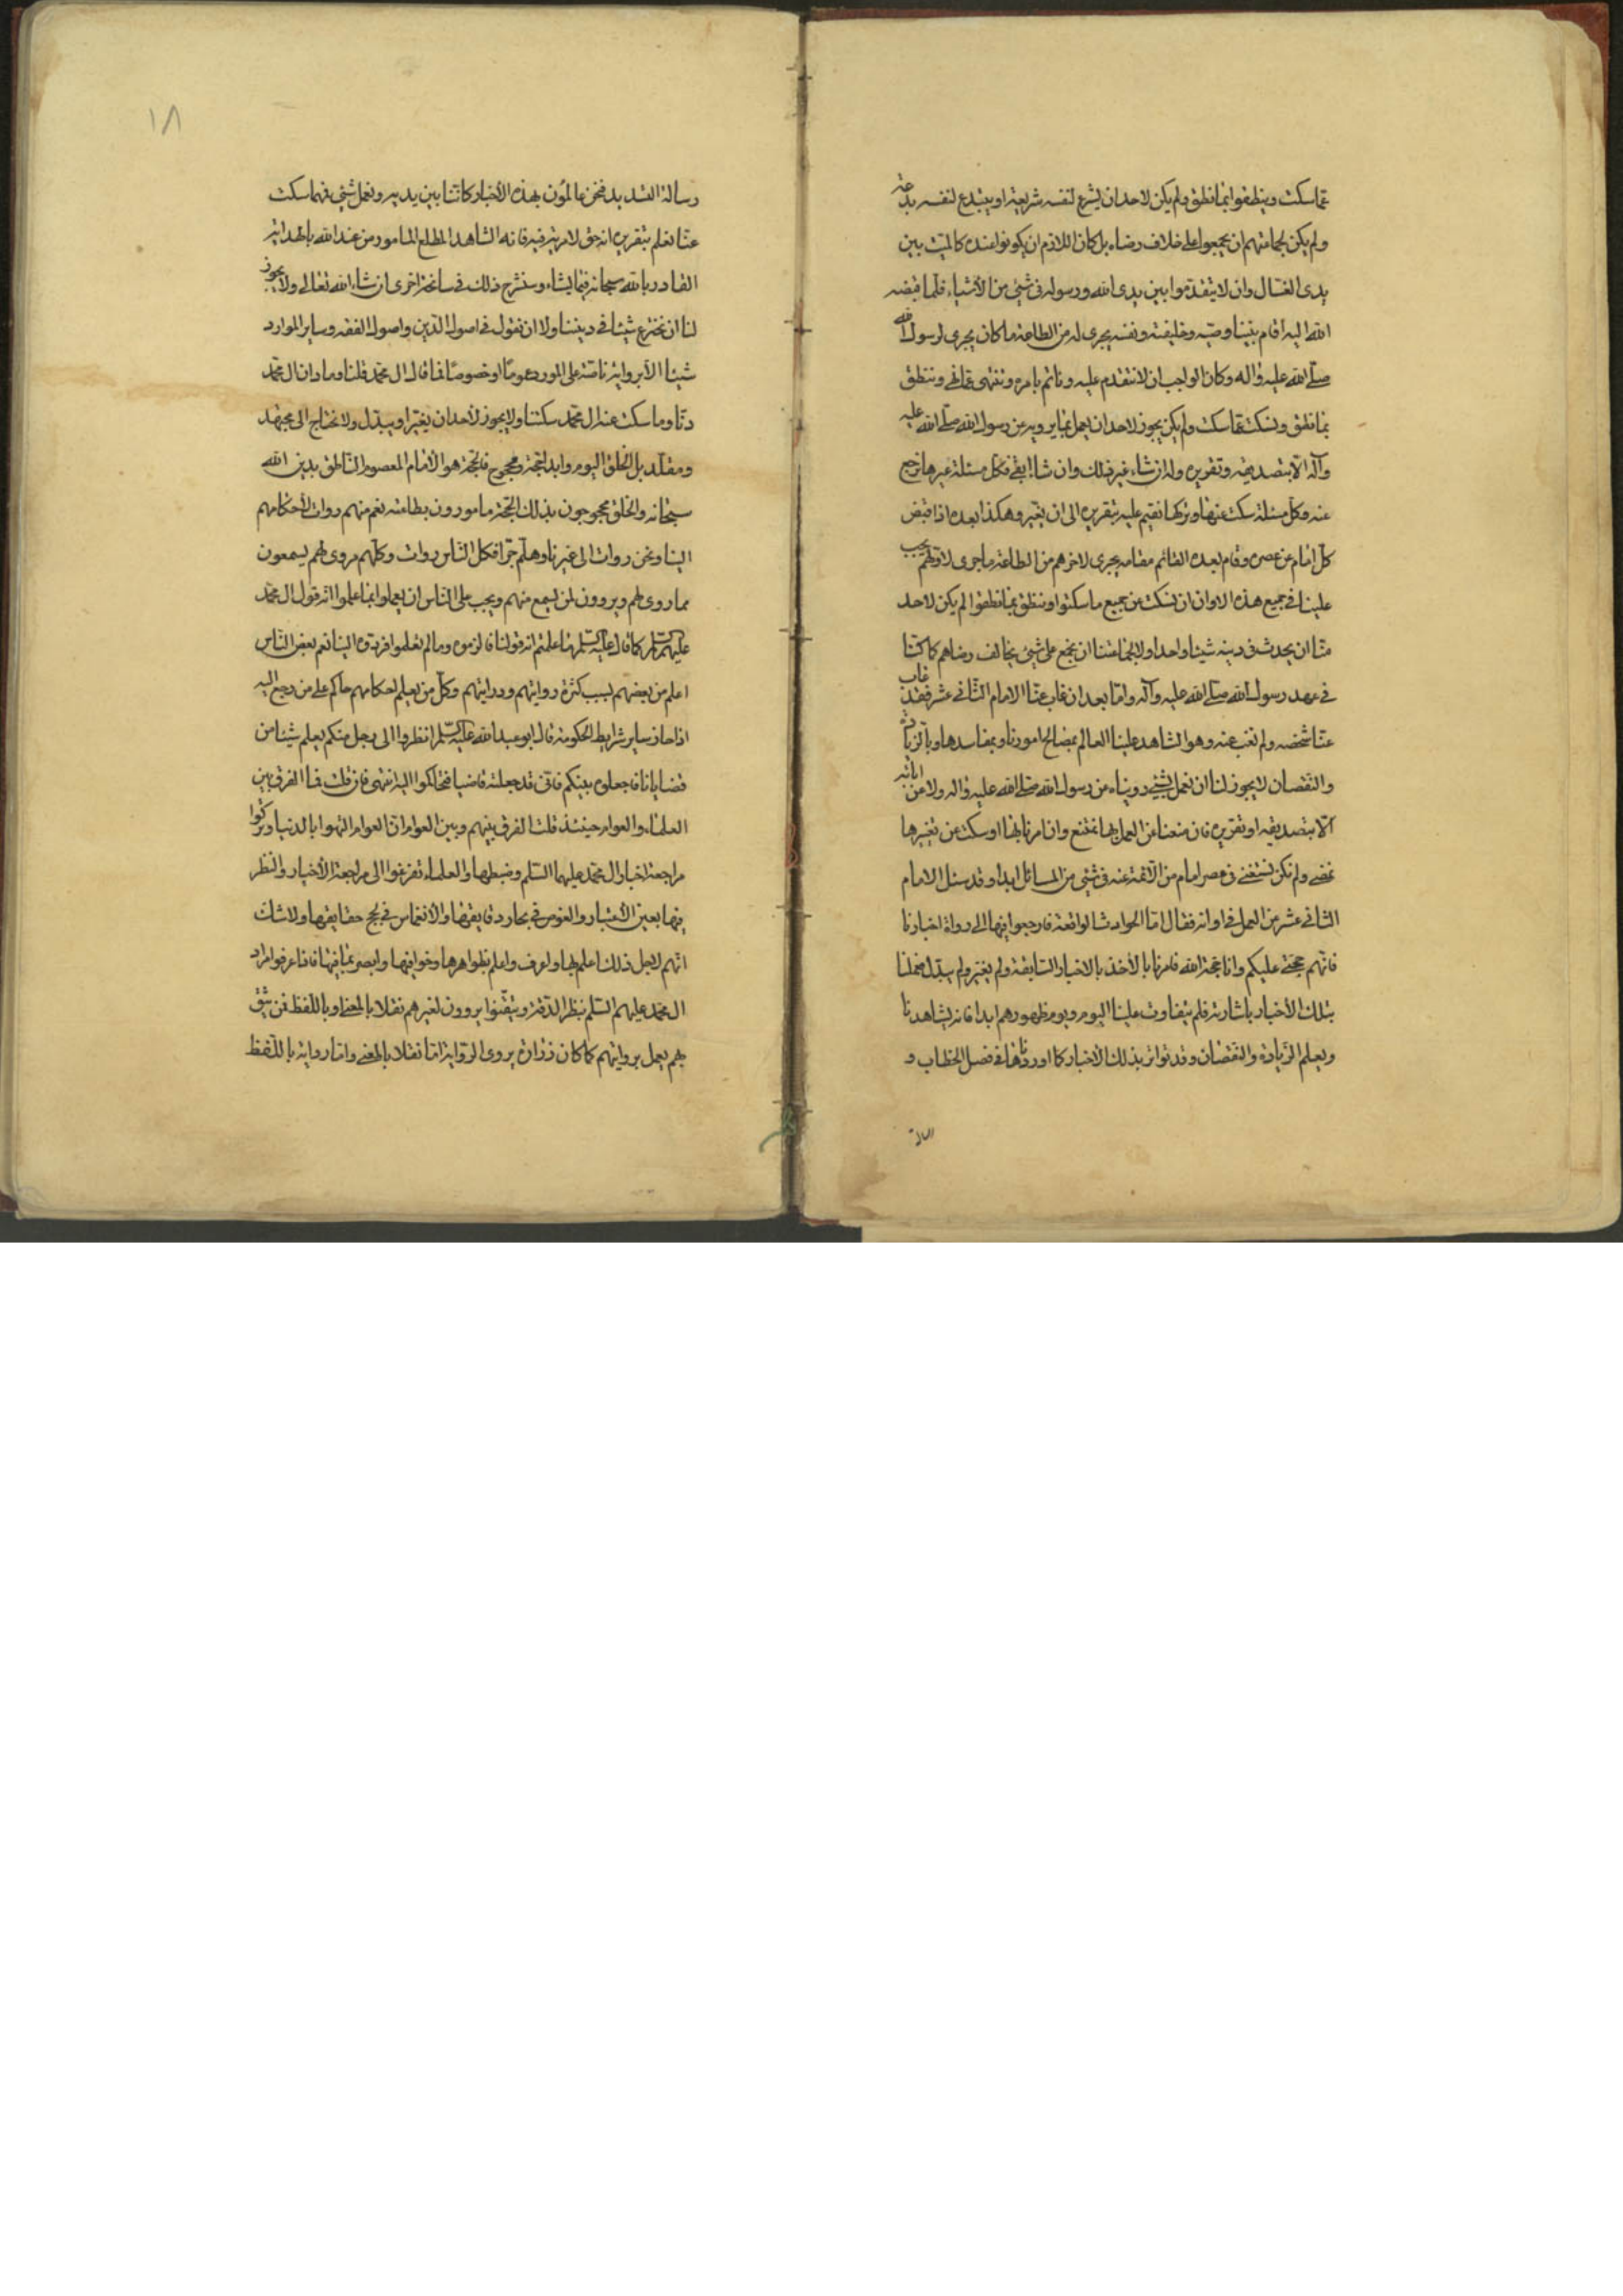 عما سكت وينطقوا بما نطق ولم يكن لاحد ان يشرع لنفسه شريعة او يبتدع لنفسه بدعة
ولم يكن لجماعتهم ان يجمعوا على خلاف رضاه بل كان اللازم ان يكونوا عنده كالميت بين
يدى الغسال وان لا يتقدموا بين يدى الله ورسوله فى شئ من الأشياء فلما قبضه
الله اليه اقام بيننا وصيه وخليفته ونفسه يجرى له من الطاعة ما كان يجرى لرسول الله
صلى الله عليه واله وكان الواجب ان لا نتقدم عليه ونأتم بامره وننتهى عما نهى وننطق
بما نطق ونسكت عما سكت ولم يكن يجوز لاحد ان يعمل بما يرويه عن رسول الله صلى الله عليه
وآله الا بتصديقه وتقريره وله ان شاء غير ذلك وان شاء ابقى فكل مسئلة غيرها نرجع
عنه وكل مسئلة سكت عنها وتركها نقيم عليه بتقريره الى ان يغير وهكذا بعده اذا قبض
كل امام عن عصره وقام بعده القائم مقامه يجرى لاخرهم من الطاعة ما جرى لاولهم يجب
علينا فى جميع هذه الاوان ان نسكت عن جميع ما سكتوا وننطق بما نطقوا لم يكن لاحد
منا ان يحدث فى دينه شيئا واحدا ولا لجماعتنا ان نجمع على شئ يخالف رضاهم كما كنا
فى عهد رسول الله صلى الله عليه وآله واما بعد ان غاب عنا الامام الثانى عشر فقد غاب
عنا شخصه ولم نغب عنه وهو الشاهد علينا العالم بمصالح امورنا وبمفاسدها وبالزيادة
والنقصان لا يجوز لنا ان نعمل بشئ رويناه من رسول الله صلى الله عليه واله ولا عن ابائه
الا بتصديقه او تقريره فان منعنا عن العمل بها نمتنع وان امرنا بها او سكت عن تغييرها
نمضى ولم نكن نستغنى فى عصر امام من الائمة عنه فى شئ من المسائل ابدا وقد سئل الامام
الثانى عشر عن العمل فى اوانه فقال اما الحوادث الواقعة فارجعوا فيها الى رواة اخبارنا
فانهم حجتى عليكم وانا حجة الله فامرنا بالأخذ بالاخبار السابقة ولم يغير ولم يبدل فعملنا
بتلك الأخبار باشارته فلم يتفاوت علينا اليوم ويوم ظهورهم ابدا فانه يشاهدنا
ويعلم الزيادة والنقصان وقد تواتر بذلك الأخبار كما اوردناها فى فصل الخطاب و
١٨
رسالة التسديد فنحن عالمون بهذه الأخبار كاننا بين يديه ونعمل بشئ فهما سكت
عنا نعلم بتقريره انه حق لا مرية فيه فانه الشاهد المطلع المامور من عند الله بالهداية
القادر بالله سبحانه فيما يشاء وسنشرح ذلك فى سانحة اخرى ان شاء الله تعالى ولا يجوز
لنا ان نخترع شيئا فى ديننا ولا ان نقول فى اصول الدين واصول الفقه وساير الموارد
شيئا الا برواية ناصة على المورد عموما او خصوصا فما قال ال محمد قلنا وما دان ال محمد
دنا وما سكت عنه ال محمد سكتنا ولا يجوز لأحد ان يغير او يبدل ولا نحتاج الى مجتهد
ومقلد بل الخلق اليوم وابدا حجة ومحجوج فالحجة هو الأمام المعصوم الناطق بدين الله
سبحانه والخلق محجوجون بذلك الحجة مامورون بطاعته نعم منهم روات لأحكامهم
الينا ونحن روات الى غيرنا وهلم جرا فكل الناس روات وكلهم مروى لهم يسمعون
مما روى لهم ويروون لمن يسمع منهم ويجب على الناس ان يعملوا بما علموا انه قول ال محمد
عليهم السلم كما قال عليه السلم ما علمتم انه قولنا فالزموه وما لم تعلموا فردوه الينا نعم بعض الناس
اعلم من بعضهم بسبب كثرة روايتهم ودرايتهم وكل من يعلم احكامهم حاكم على من رجع اليه
اذا حاز ساير شرايط الحكومة قال ابو عبد الله عليه السلم انظروا الى رجل منكم يعلم شيئا من
قضايانا فاجعلوه بينكم فانى قد جعلته قاضيا فتحاكموا اليه انتهى فان قلت فما الفرق بين
العلماء والعوام حينئذ قلت الفرق بينهم وبين العوام ان العوام التهوا بالدنيا وتركوا
مراجعة اخبار ال محمد عليهما السلم وضبطها والعلماء تفرغوا الى مراجعة الأخبار والنظر
فيها بعين الأعتبار والغوص فى بحار دقايقها والأنغماس فى لجج حقايقها ولا شك
انهم لاجل ذلك اعلم بها واعرف واعلم بظواهرها وخوافيها وابصر بما فيها فاذا عرفوا مراد
ال محمد عليهم السلم بنظر الدقة وتيقنوا يروون لغيرهم نقلا بالمعنى او باللفظ فمن يثق
بهم يعمل بروايتهم كما كان زرارة يروى الرواية اما نقلا بالمعنى واما رواية باللفظ